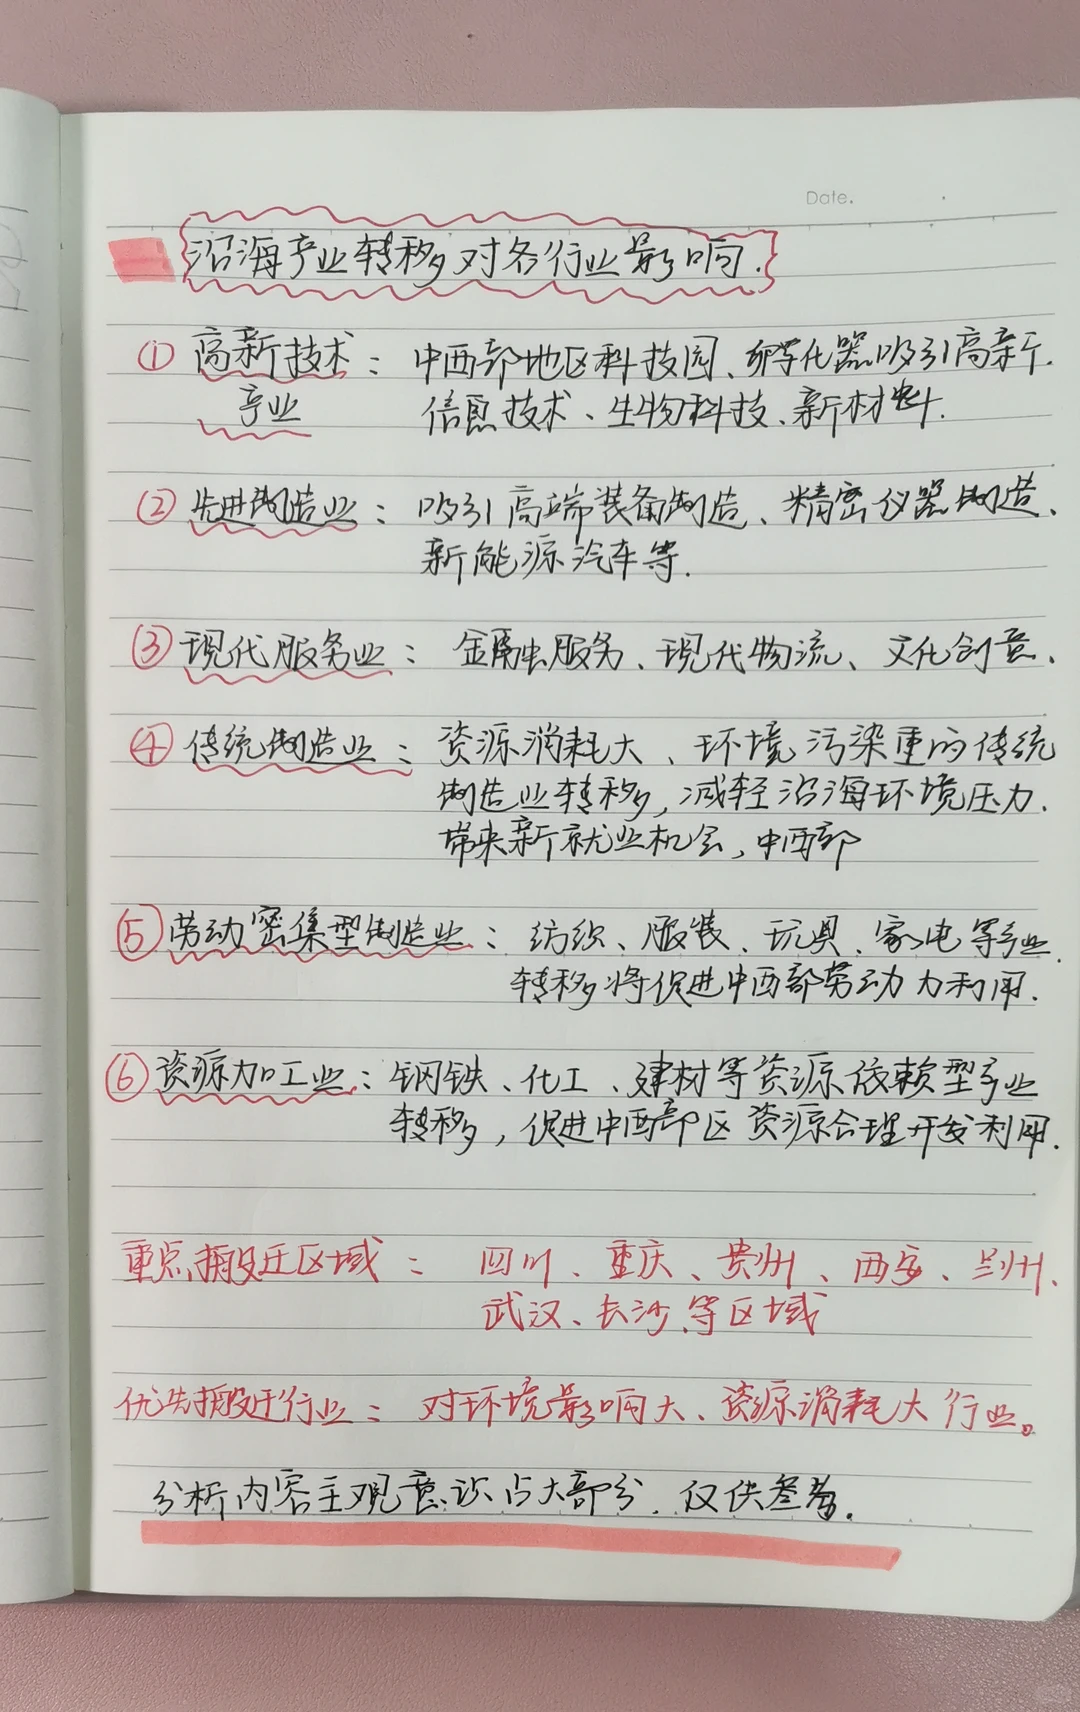 Date.
沿海产业转移对各行业影响.
① 高新技术：中西部地区科技园、孵化器吸引高新.
产业 信息技术、生物科技、新材料.
② 先进制造业：吸引高端装备制造、精密仪器制造、
新能源汽车等.
③ 现代服务业：金融服务、现代物流、文化创意、
④ 传统制造业：资源消耗大、环境污染重的传统
制造业转移,减轻沿海环境压力.
带来新就业机会,中西部
⑤ 劳动密集型制造业：纺织、服装、玩具、家电等产业.
转移将促进中西部劳动力利用.
⑥ 资源加工业：钢铁、化工、建材等资源依赖型产业
转移,促进中西部区资源合理开发利用.
重点搬迁区域：四川、重庆、贵州、西安、兰州、
武汉、长沙、等区域
优先搬迁行业：对环境影响大、资源消耗大行业。
分析内容主观意识占大部分.仅供参考.